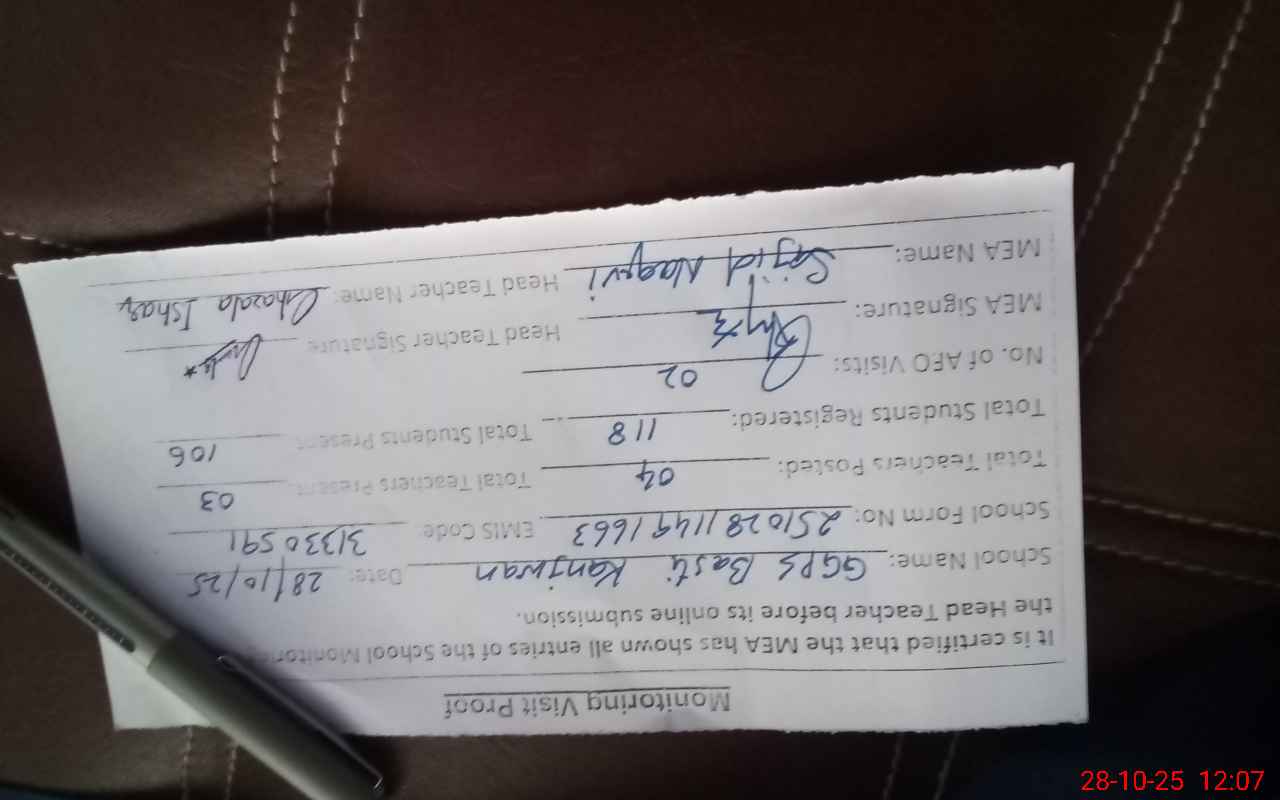 Monitoring Visit Proof
It is certified that the MEA has shown all entries of the School Monitoring
the Head Teacher before its online submission.
School Name: GGPS Basti Kanjwan Date: 28/10/25
School Form No: 25102811491663 EMIS Code: 31330591
Total Teachers Posted: 04 Total Teachers Present: 03
Total Students Registered: 118 Total Students Present: 106
No. of AEO Visits: 02
MEA Signature: Head Teacher Signature:
MEA Name: Sajid Naqvi Head Teacher Name: Ghazala Ishaq
28-10-25 12:07